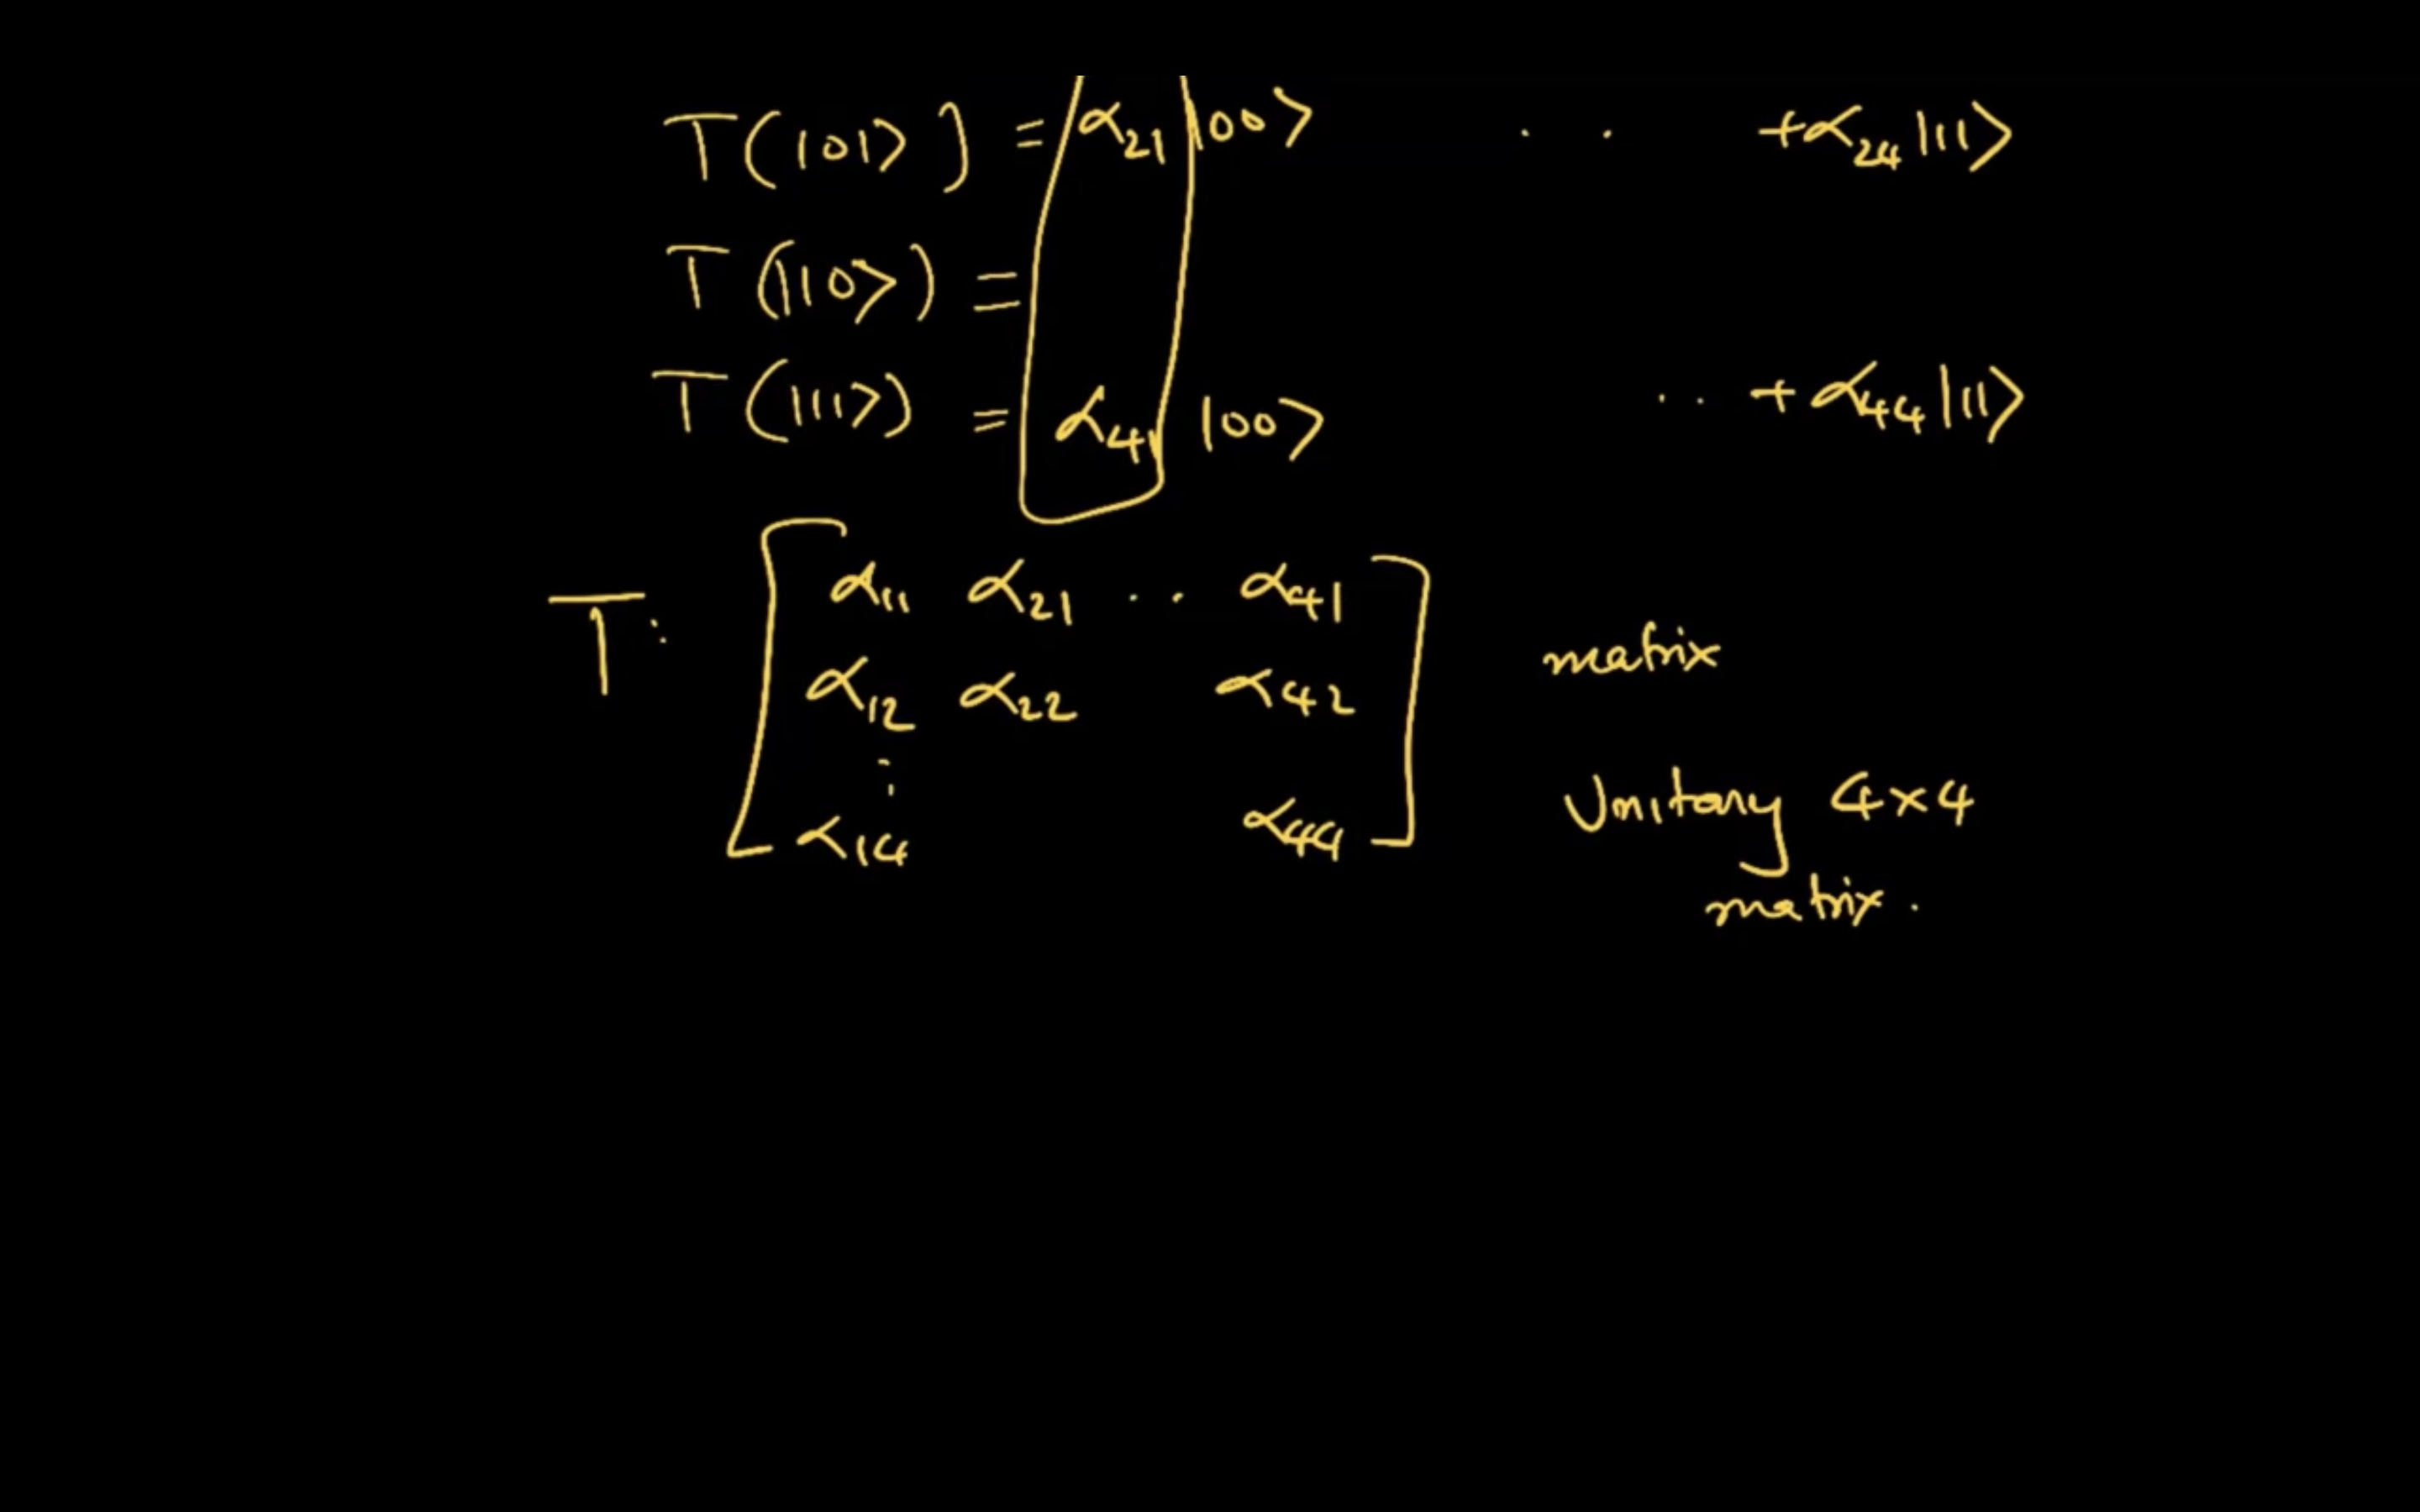 T(|01⟩) = α₂₁|00⟩ . . +α₂₄|11⟩
T(|10⟩) =
T(|11⟩) = α₄₁|00⟩ .. + α₄₄|11⟩
T: [ α₁₁ α₂₁ .. α₄₁ ] matrix
α₁₂ α₂₂ α₄₂
⋮
α₁₄ α₄₄
Unitary 4×4
matrix.